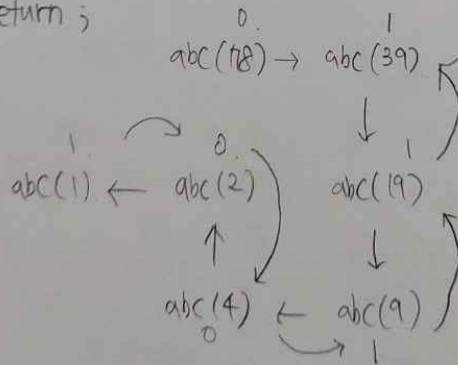 eturn ;
0. 1
abc(78) → abc(39)
↓
1. 0. 1
abc(1) ← abc(2) abc(19)
↑ ↓
abc(4) ← abc(9)
0 1